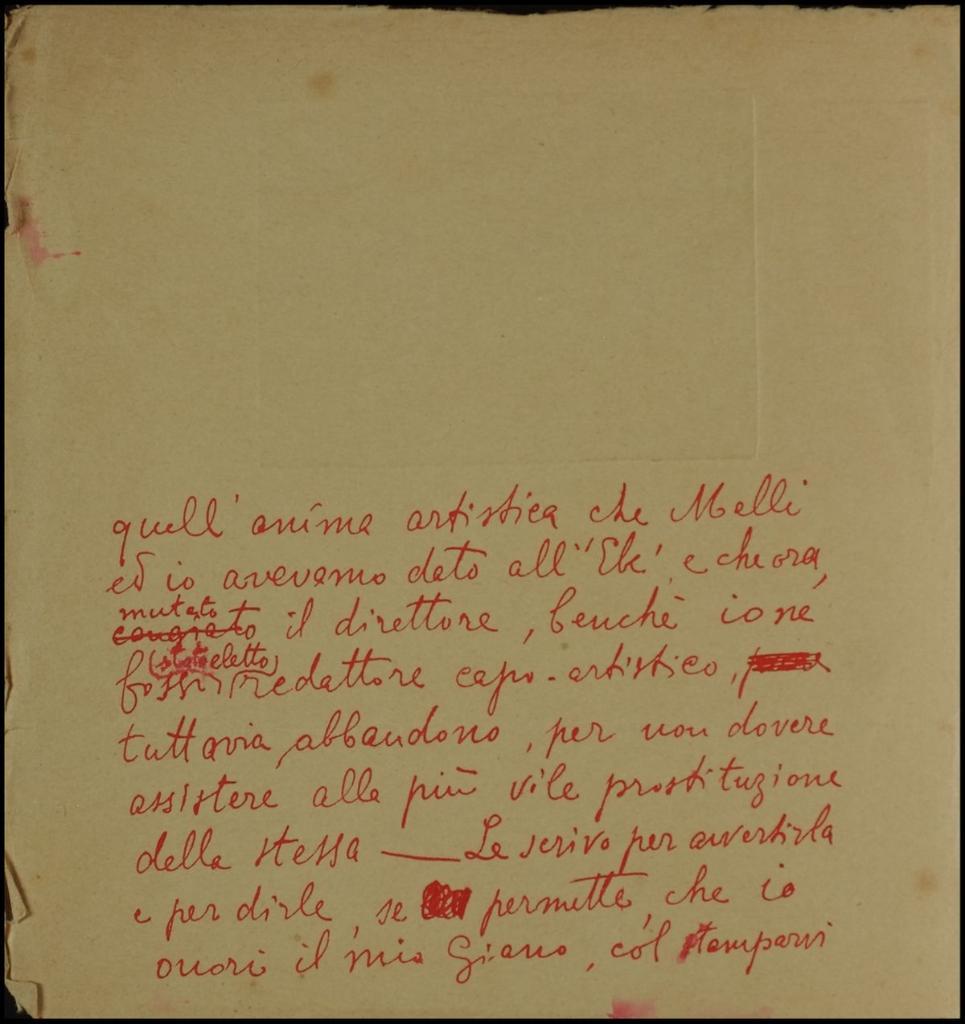 quell'anima artistica che Melli
ed io avevamo dato all'"Ebe", e che ora,
mutato
cangiato il direttore, benchè io ne
(stato eletto)
fossi redattore capo-artistico,
tuttavia abbandono, per non dovere
assistere alla più vile prostituzione
della stessa — Le scrivo per avvertirla
e per dirle, se permette, che io
onori il mio Giano, col stamparvi